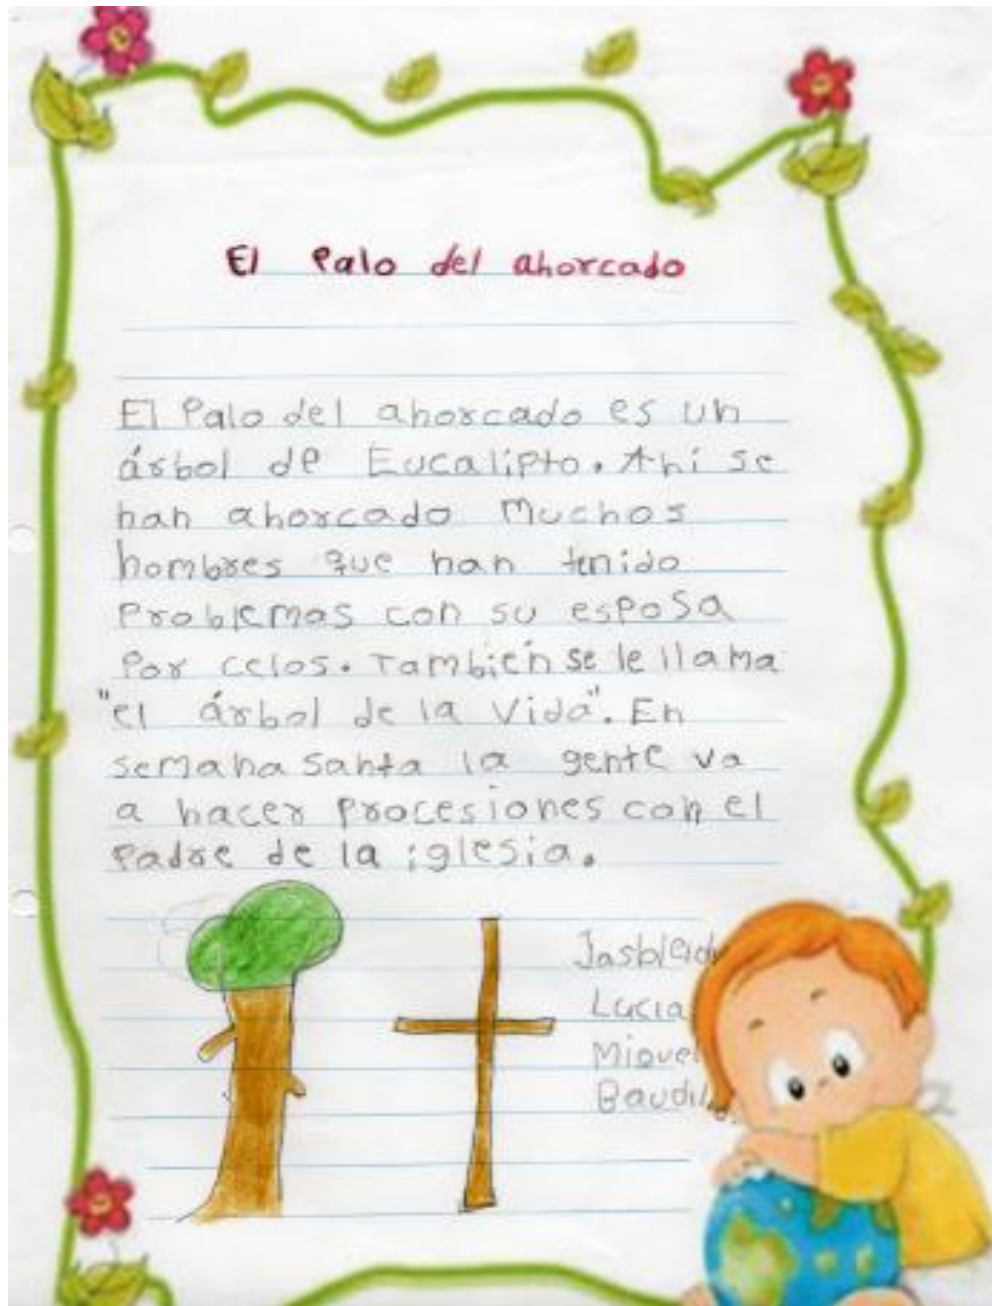 El Palo del ahorcado
El Palo del ahorcado es un
árbol de Eucalipto. Ahí se
han ahorcado muchos
hombres que han tenido
problemas con su esposa
Por celos. También se le llama
"el árbol de la Vida". En
semana santa la gente va
a hacer procesiones con el
padre de la iglesia.
Lucia
Miguel